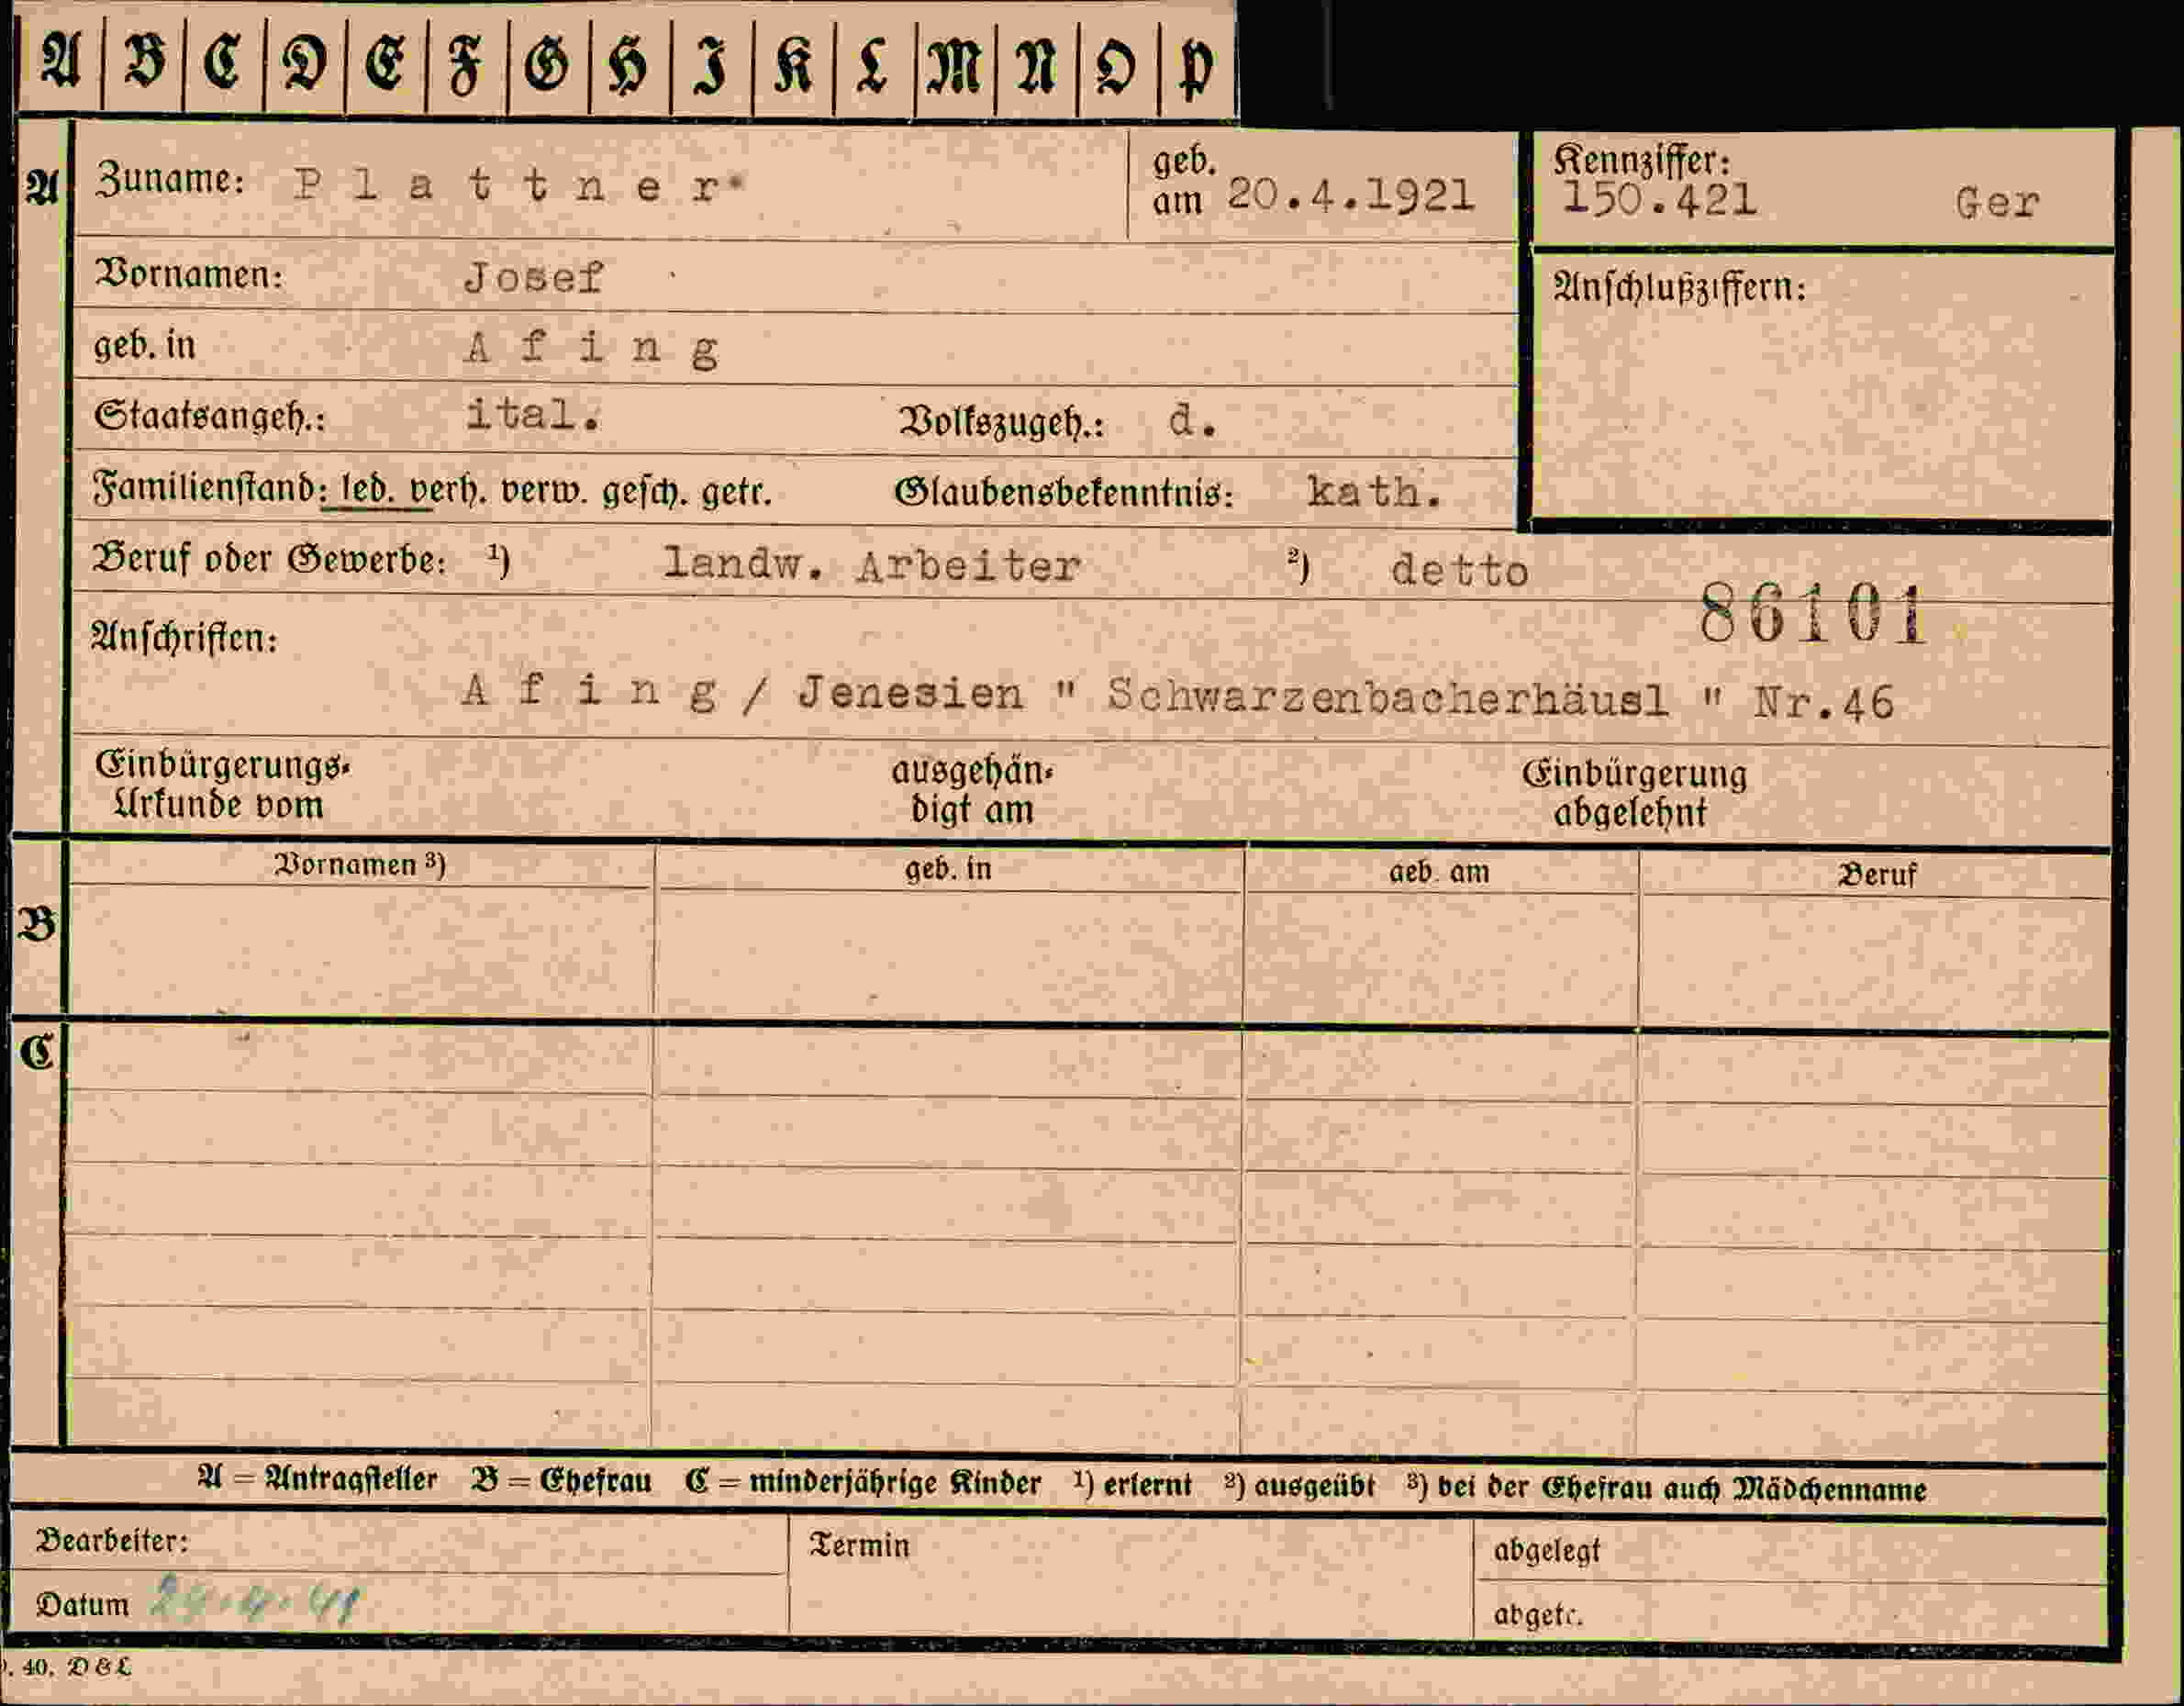 A B C D E F G H I K L M N O P
A Zuname: P l a t t n e r geb. am 20.4.1921 Kennziffer: 150.421 Ger
Vornamen: Josef Anschlußziffern:
geb. in A f i n g
Staatsangeh.: ital. Volkszugeh.: d.
Familienstand: led. verh. verw. gesch. getr. Glaubensbekenntnis: kath.
Beruf oder Gewerbe: 1) landw. Arbeiter 2) detto
86101
Anschriften:
A f i n g / Jenesien " Schwarzenbacherhäusl " Nr.46
Einbürgerungs- ausgehän- Einbürgerung
Urkunde vom digt am abgelehnt
Vornamen 3) geb. in geb. am Beruf
B
C
A = Antragsteller B = Ehefrau C = minderjährige Kinder 1) erlernt 2) ausgeübt 3) bei der Ehefrau auch Mädchenname
Bearbeiter: Termin abgelegt
Datum abgetr.
. 40. D & L